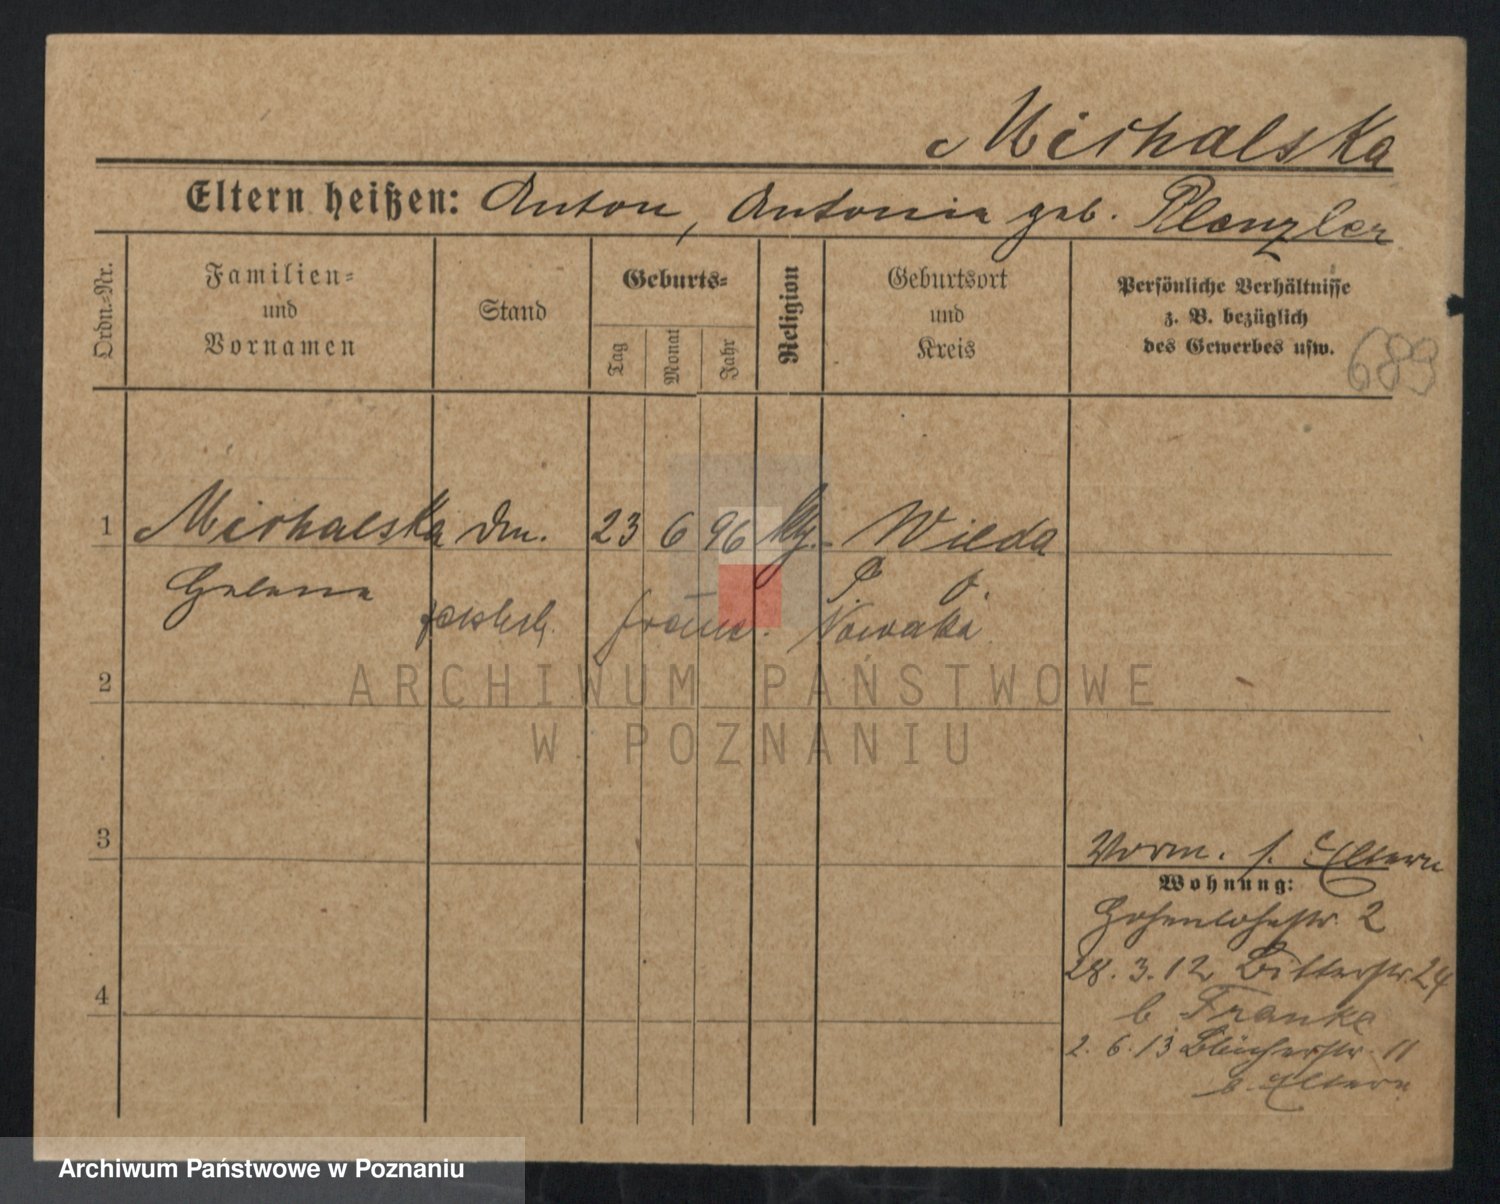 Michalska
Eltern heißen: Anton, Antonia geb. Plenzler
Ordn.-Nr.
Familien-
und
Vornamen
Stand
Geburts-
Tag
Monat
Jahr
Religion
Geburtsort
und
Kreis
Persönliche Verhältnisse
z. B. bezüglich
des Gewerbes usw.
689
1 Michalska 23 6 96 Wilda
Helena P. O.
Nowacki
2
3
4
Vorm. s. Eltern
Wohnung:
Hohenlohestr. 2
28. 3. 12 Bitterstr. 24
b Franke
2. 6. 13 Blücherstr. 11
b. Eltern
ARCHIWUM PAŃSTWOWE
W POZNANIU
Archiwum Państwowe w Poznaniu